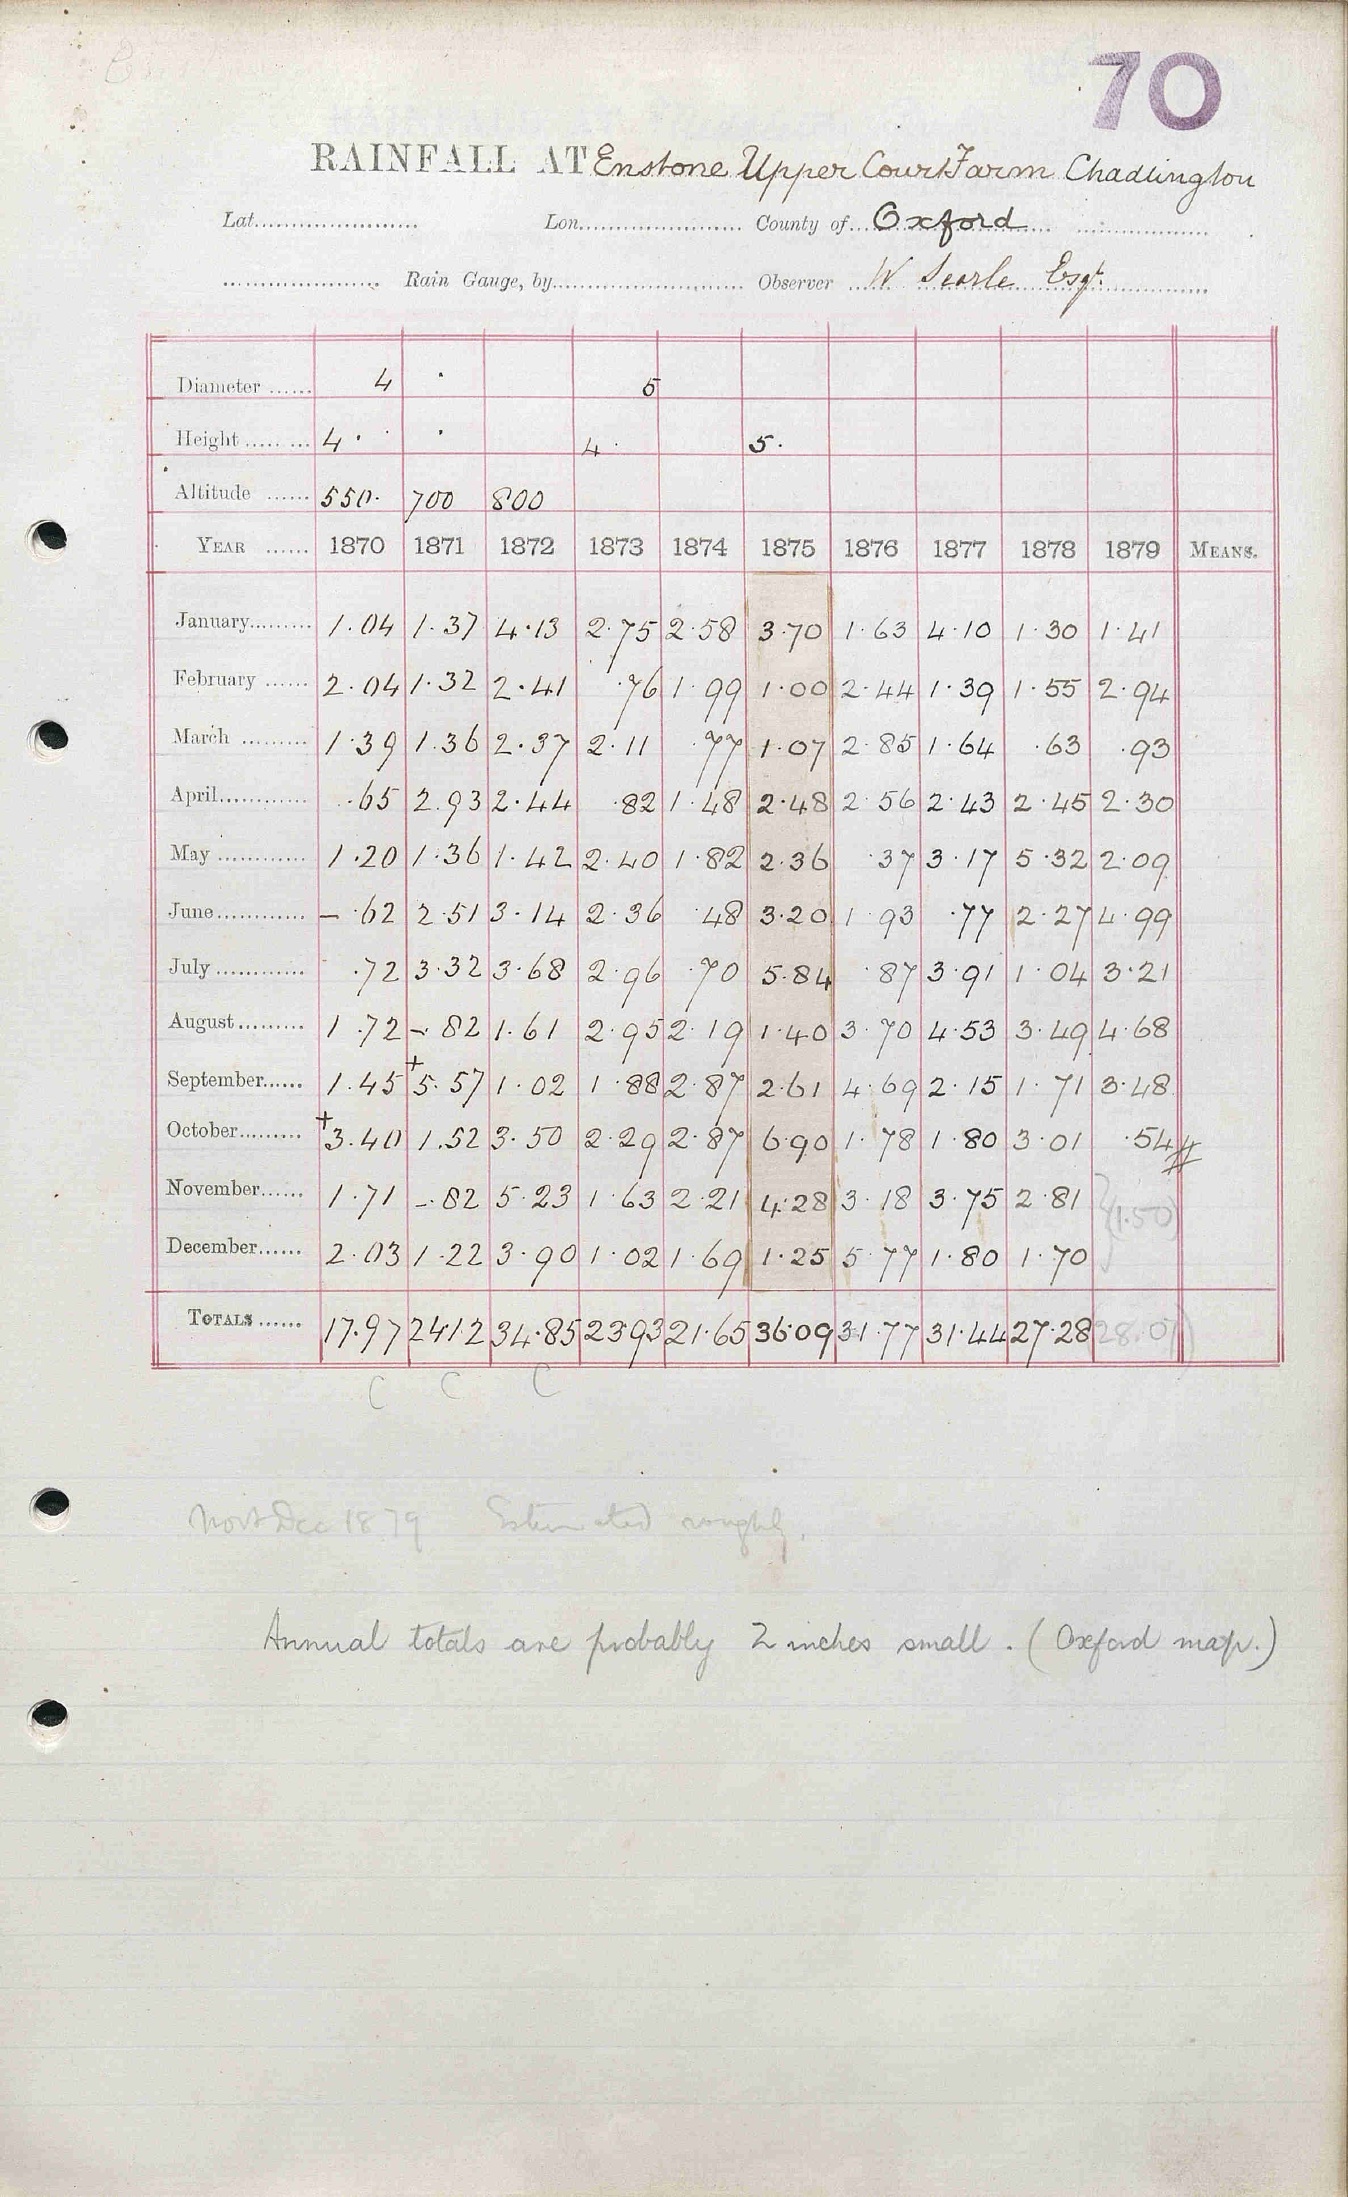 70
RAINFALL AT Enstone Upper Court Farm Chadlington
Lat. Lon. County of Oxford
Rain Gauge, by Observer W Searle Esqr.
Diameter 4 · 5
Height 4· · 4· 5·
Altitude 550· 700 800
YEAR 1870 1871 1872 1873 1874 1875 1876 1877 1878 1879 MEANS.
January 1·04 1·37 4·13 2·75 2·58 3·70 1·63 4·10 1·30 1·41
February 2·04 1·32 2·41 ·76 1·99 1·00 2·44 1·39 1·55 2·94
March 1·39 1·36 2·37 2·11 ·77 1·07 2·85 1·64 ·63 ·93
April ·65 2.93 2·44 ·82 1·48 2·48 2·56 2·43 2·45 2·30
May 1·20 1·36 1·42 2·40 1·82 2·36 ·37 3·17 5·32 2·09
June – ·62 2·51 3·14 2·36 ·48 3·20 1·93 ·77 2·27 4·99
July ·72 3·32 3·68 2·96 ·70 5·84 ·87 3·91 1·04 3·21
August 1·72 –·82 1·61 2·95 2·19 1·40 3·70 4·53 3·49 4·68
September 1·45 +5·57 1·02 1·88 2·87 2·61 4·69 2·15 1·71 3·48
October +3·40 1.52 3·50 2·29 2·87 6·90 1·78 1·80 3·01 ·54 #
November 1·71 –·82 5·23 1·63 2·21 4·28 3·18 3·75 2·81
(1.50)
December 2·03 1·22 3·90 1·02 1·69 1·25 5·77 1·80 1·70
TOTALS 17·97 2412 34·85 2393 21·65 36·09 31·77 31·44 27·28 (28.07)
C C C
Nov & Dec 1879 Estimated roughly.
Annual totals are probably 2 inches small. (Oxford map.)